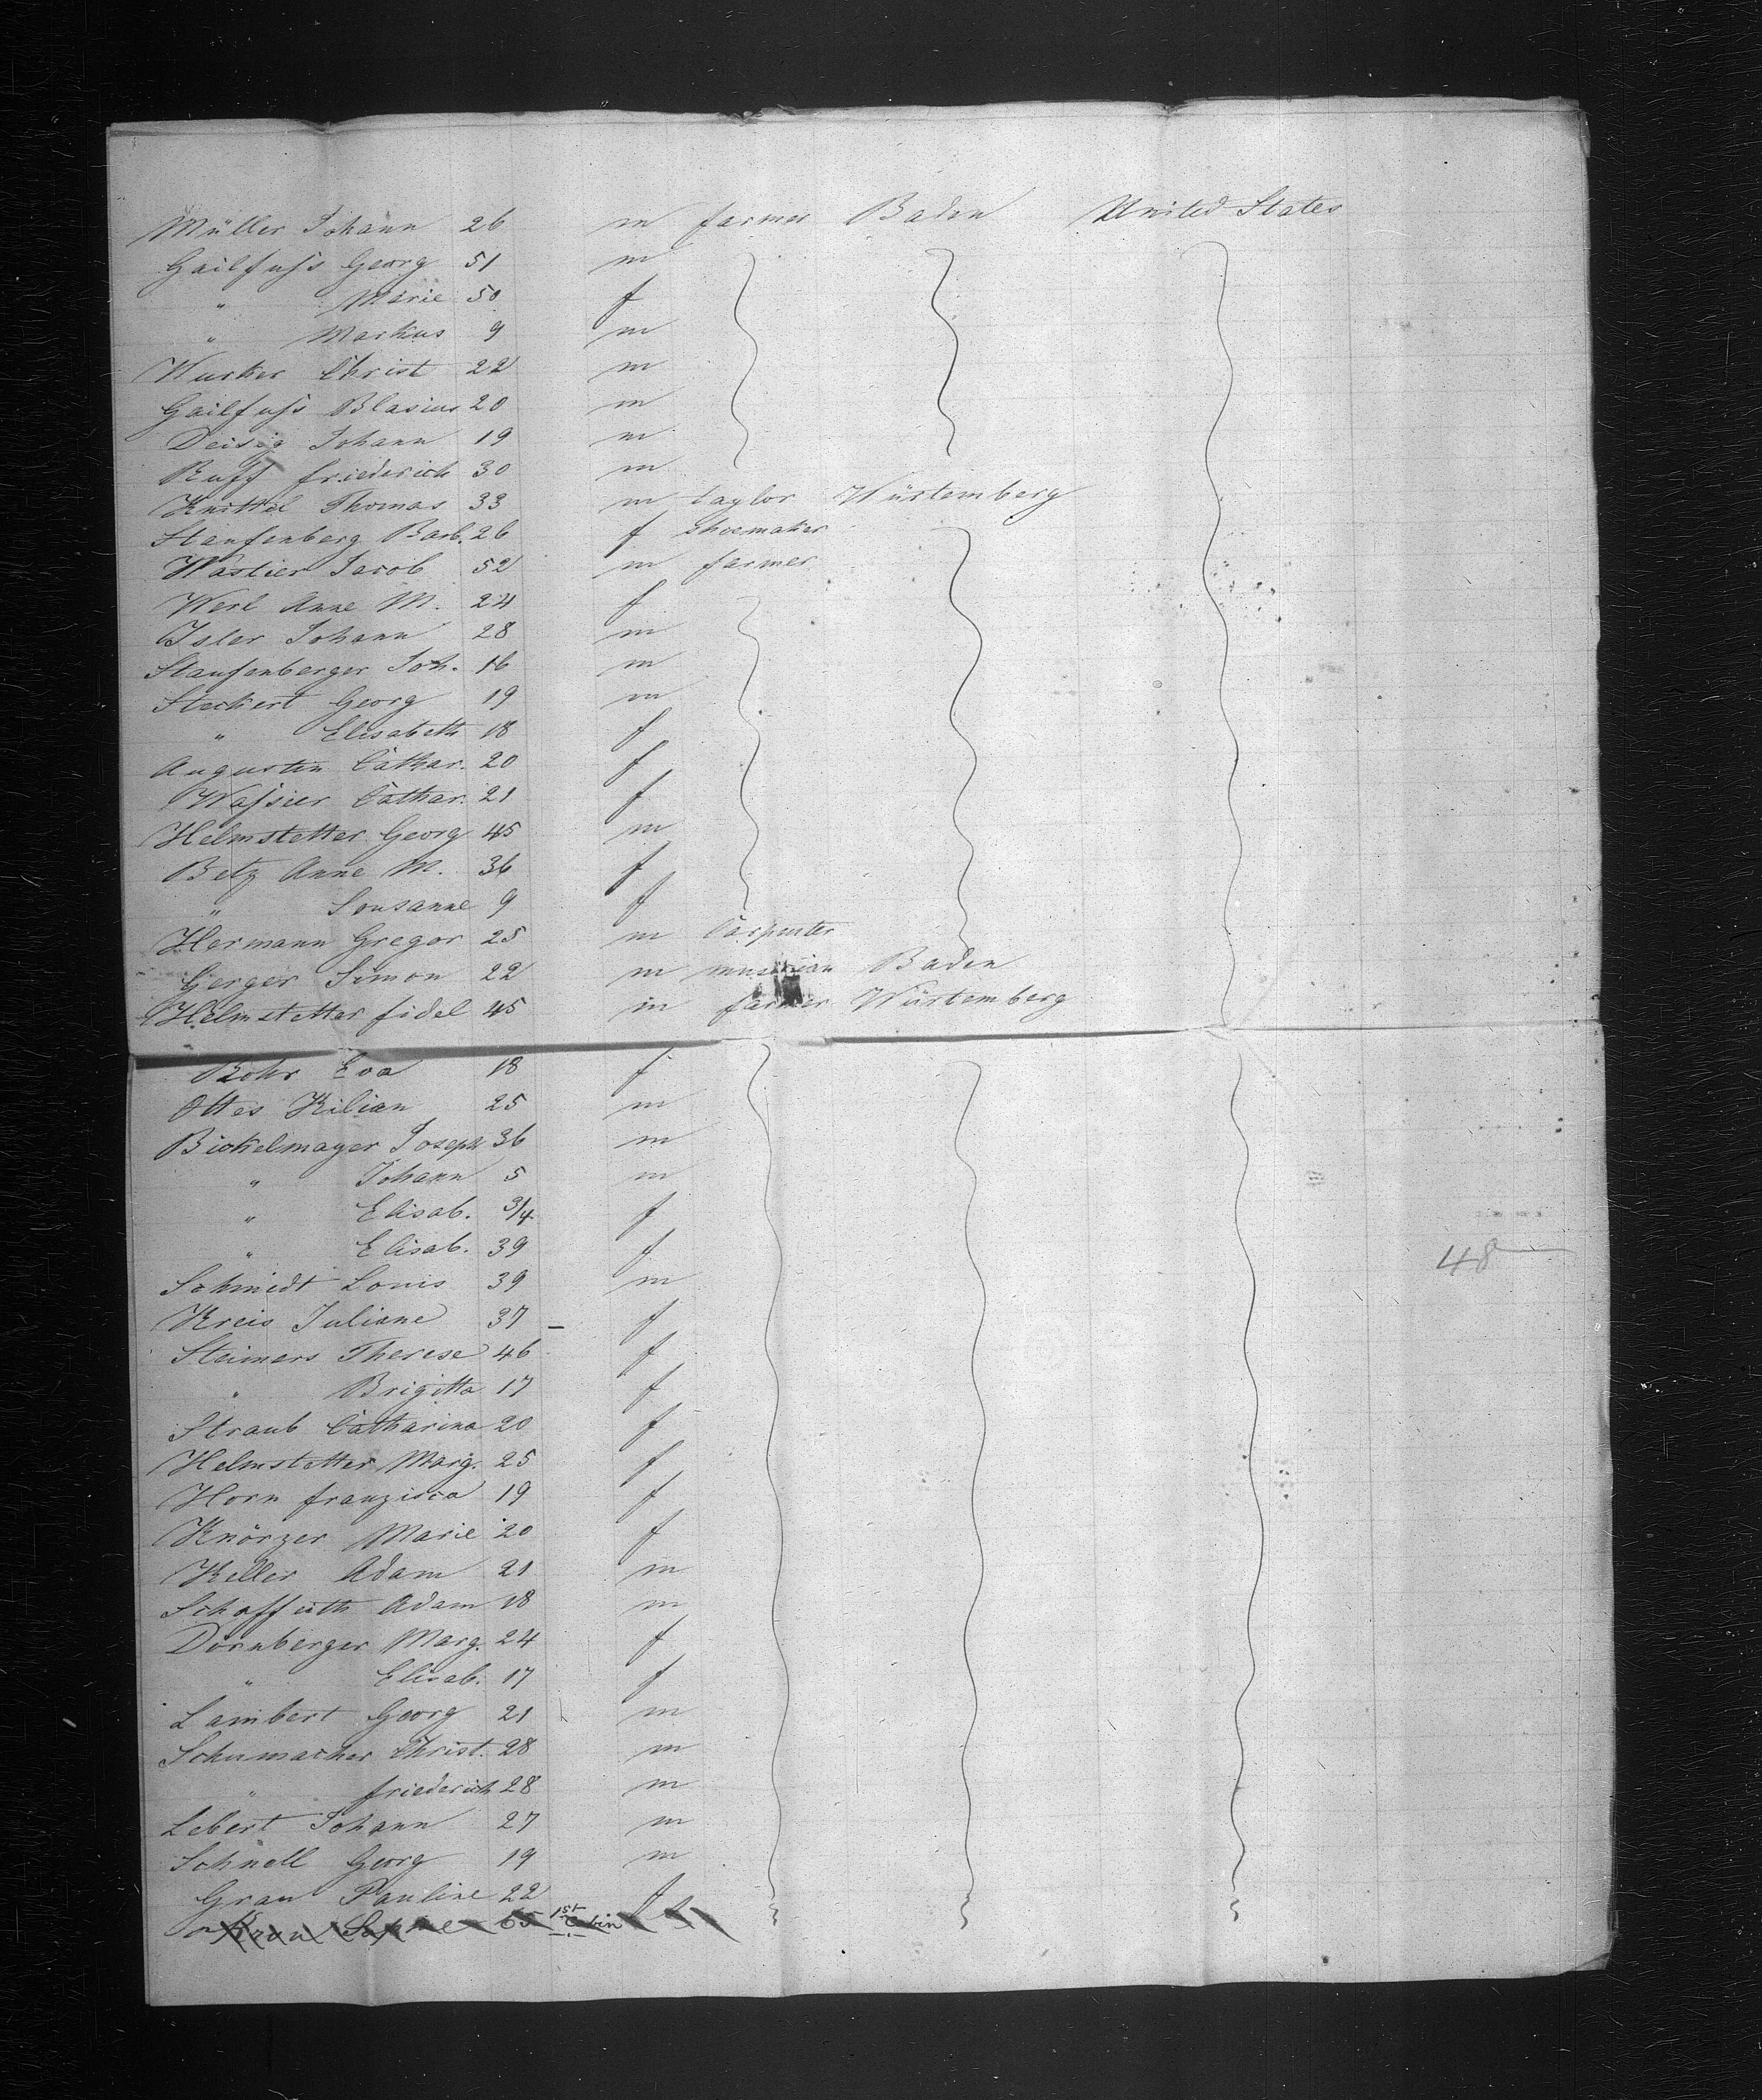 Müller Johann 26 m farmer Baden United States
Gailfuſs Georg 51 m
" Marie 50 f
" Markus 9 m
Wurker Christ 22 m
Gailfuſs Blasius 20 m
Deisig Johann 19 m
Ruff friederich 30 m
Knittel Thomas 33 m taylor Würtemberg
Staufenberg Barb. 26 f shoemaker
Wastier Jacob 52 m farmer
Werl Anne M. 24 f
Isler Johann 28 m
Staufenberger Joh. 16 m
Steckert Georg 19 m
" Elisabeth 18 f
Augustin Cathar. 20 f
Waſsier Cathar. 21 f
Helmstetter Georg 45 m
Betz Anne M. 36 f
" Sousanne 9 f
Hermann Gregor 25 m Carpenter
Gerger Simon 22 m musician Baden
Helmstetter fidel 45 m farmer Würtemberg
Rohr Eva 18 f
Ottes Kilian 25 m
Bickelmayer Joseph 36 m
" Johann 5 m
" Elisab. 3/4 f
" Elisab. 39 f 48
Schmidt Louis 39 m
Kreis Juliane 37 – f
Steimers Therese 46 f
" Brigitta 17 f
Straub Catharina 20 f
Helmstetter Marg. 25 f
Horn franzisca 19 f
Knörzer Marie 20 f
Keller Adam 21 m
Schaffuth Adam 18 m
Dörnberger Marg. 24 f
" Elisab. 17 f
Lambert Georg 21 m
Schumacher Christ. 28 m
" friederich 28 m
Lebert Johann 27 m
Schnell Georg 19 m
Grau Pauline 22 f
65 1st Cabin